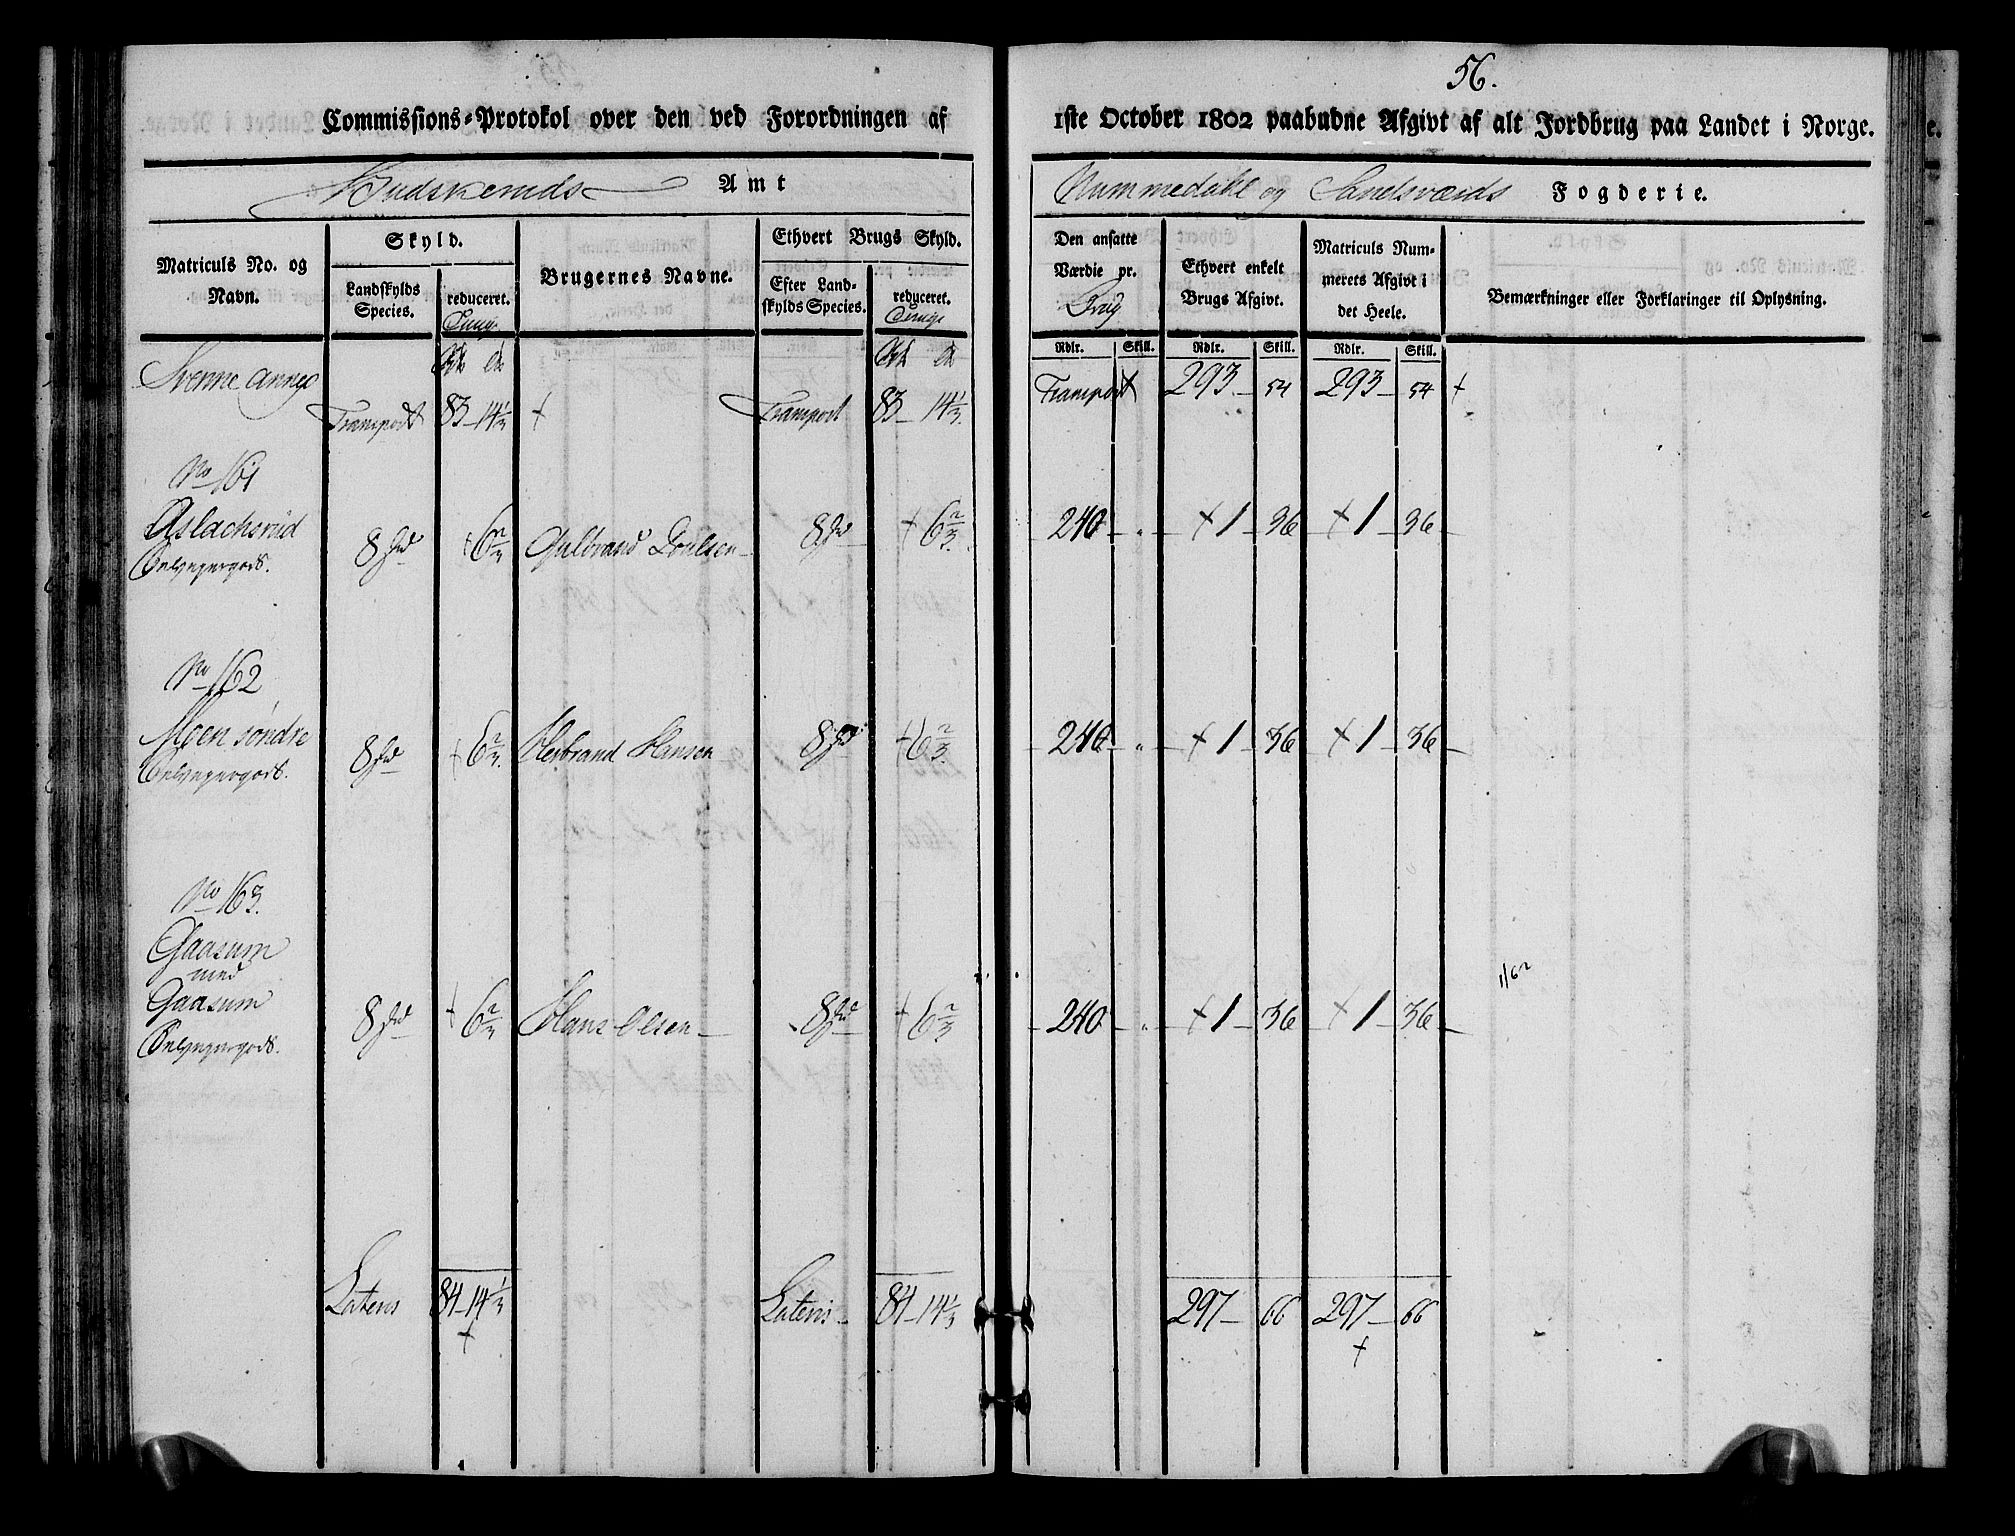 56.
Commissions-Protokol over den ved Forordningen af 1ste October 1802 paabudne Afgivt af alt Jordbrug paa Landet i Norge.
Budskeruds Amt Nummedahl og Sandsværds Fogderie.
Matriculs No. og Navn.
Skyld.
Landskylds Species.
reduceret.
Brugernes Navne.
Ethvert Brugs Skyld.
Efter Landskylds Species.
reduceret.
Den ansatte Værdie pr.
Ethvert enkelt Brugs Afgivt.
Matriculs Nummerets Afgivt i det Heele.
Bemærkninger eller Forklaringer til Oplysning.
Rdlr. Skill. Rdlr. Skill. Rdlr. Skill.
Svenne annex
Transport 83 - 14 1/3 + Transport 83 - 14 1/3 Transport 293 54 293 54 +
No 161
Aslachsrud 8 + 6 2/3 Gulbrand 8 + 6 2/3 240 - „ - + 1 - 36 + 1 - 36 -
No 162
Moen søndre 8 + 6 2/3 Herbrand Hansen 8 + 6 2/3 - 240 - „ - + 1 - 36 + 1 - 36 -
No 163.
Gaasum
med
Gaasum 8 + 6 2/3 Hans Olsen - 8 + 6 2/3 - 240 - „ - + 1 - 36 + 1 - 36 -
Lateris 84 - 14 1/3 Lateris - 84 - 14 1/3 297 - 66 297 - 66
+ +